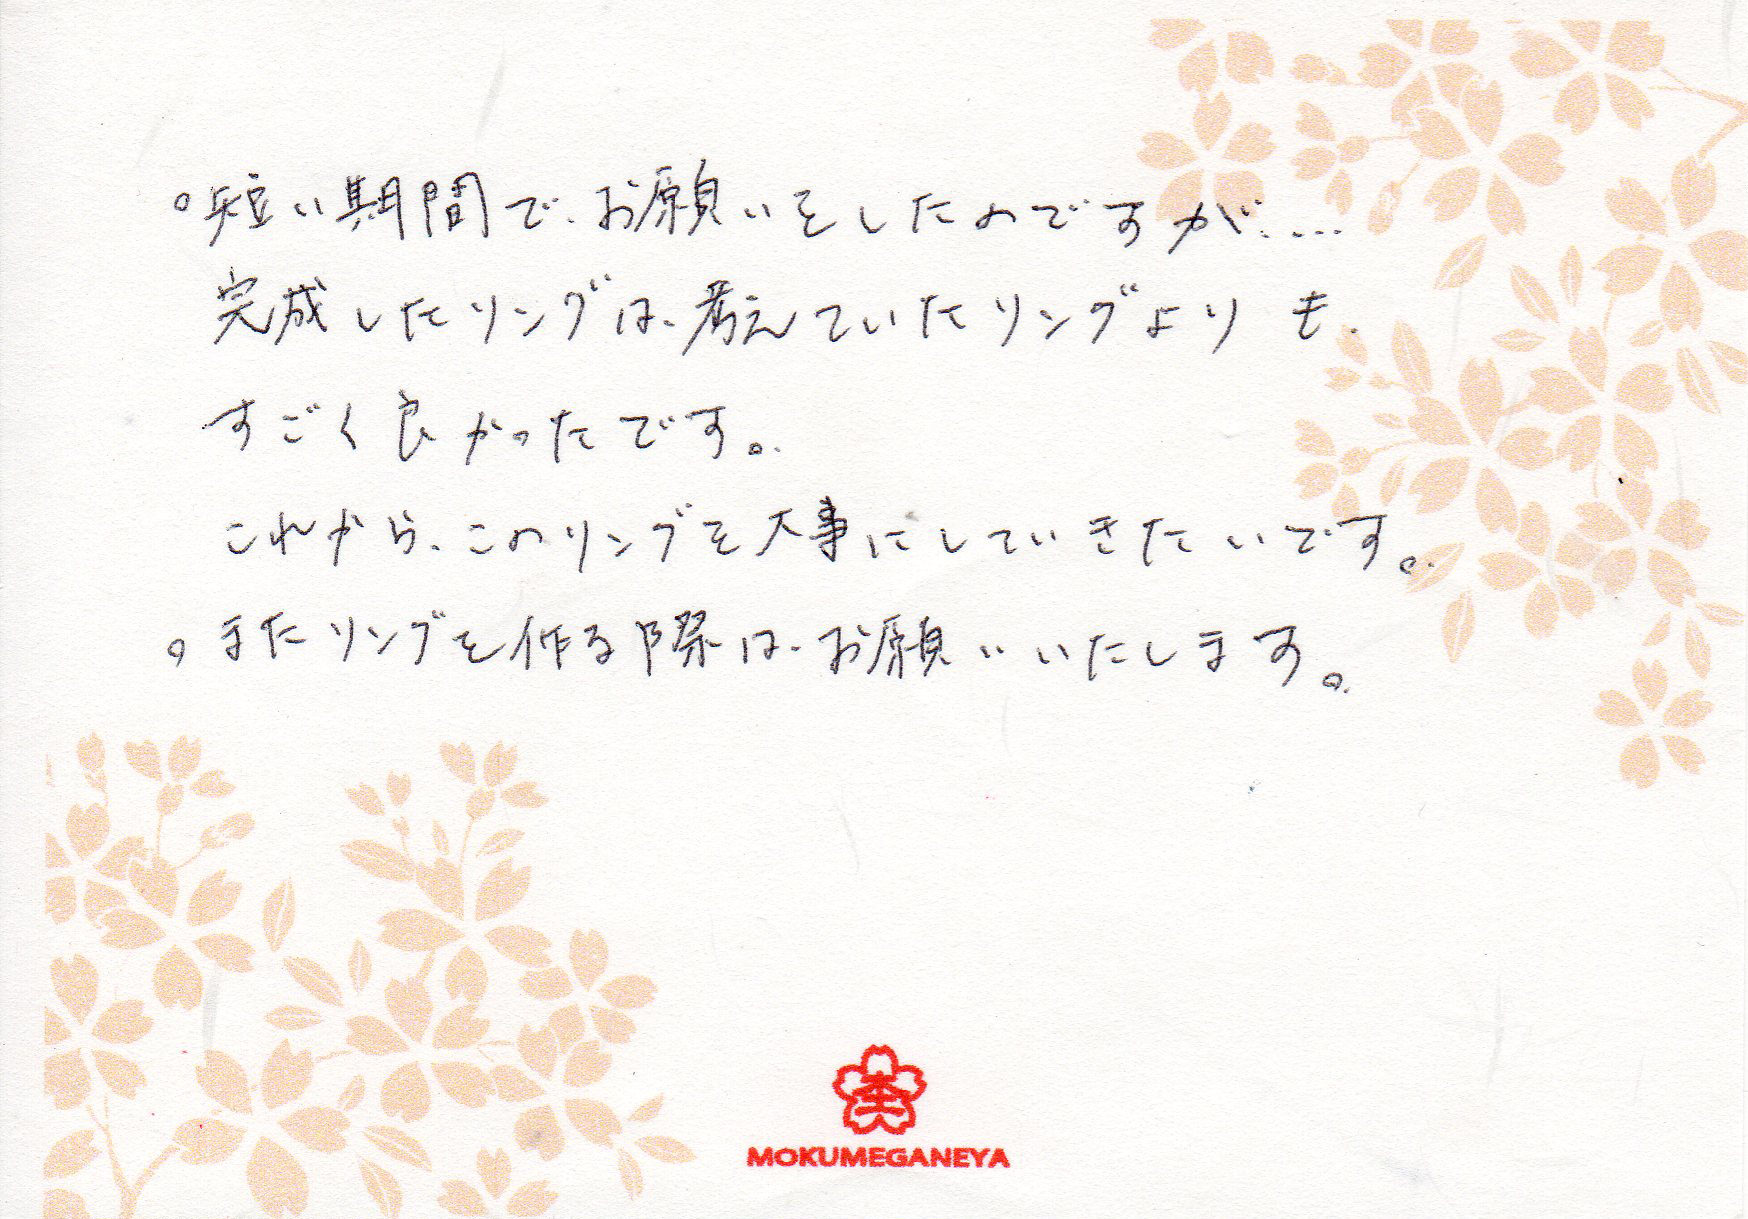 ○短い期間で、お願いをしたのですが....
完成したリングは、考えていたリングよりも、
すごく良かったです。
これから、このリングを大事にしていきたいです。
○またリングを作る際は、お願いいたします。
MOKUMEGANEYA